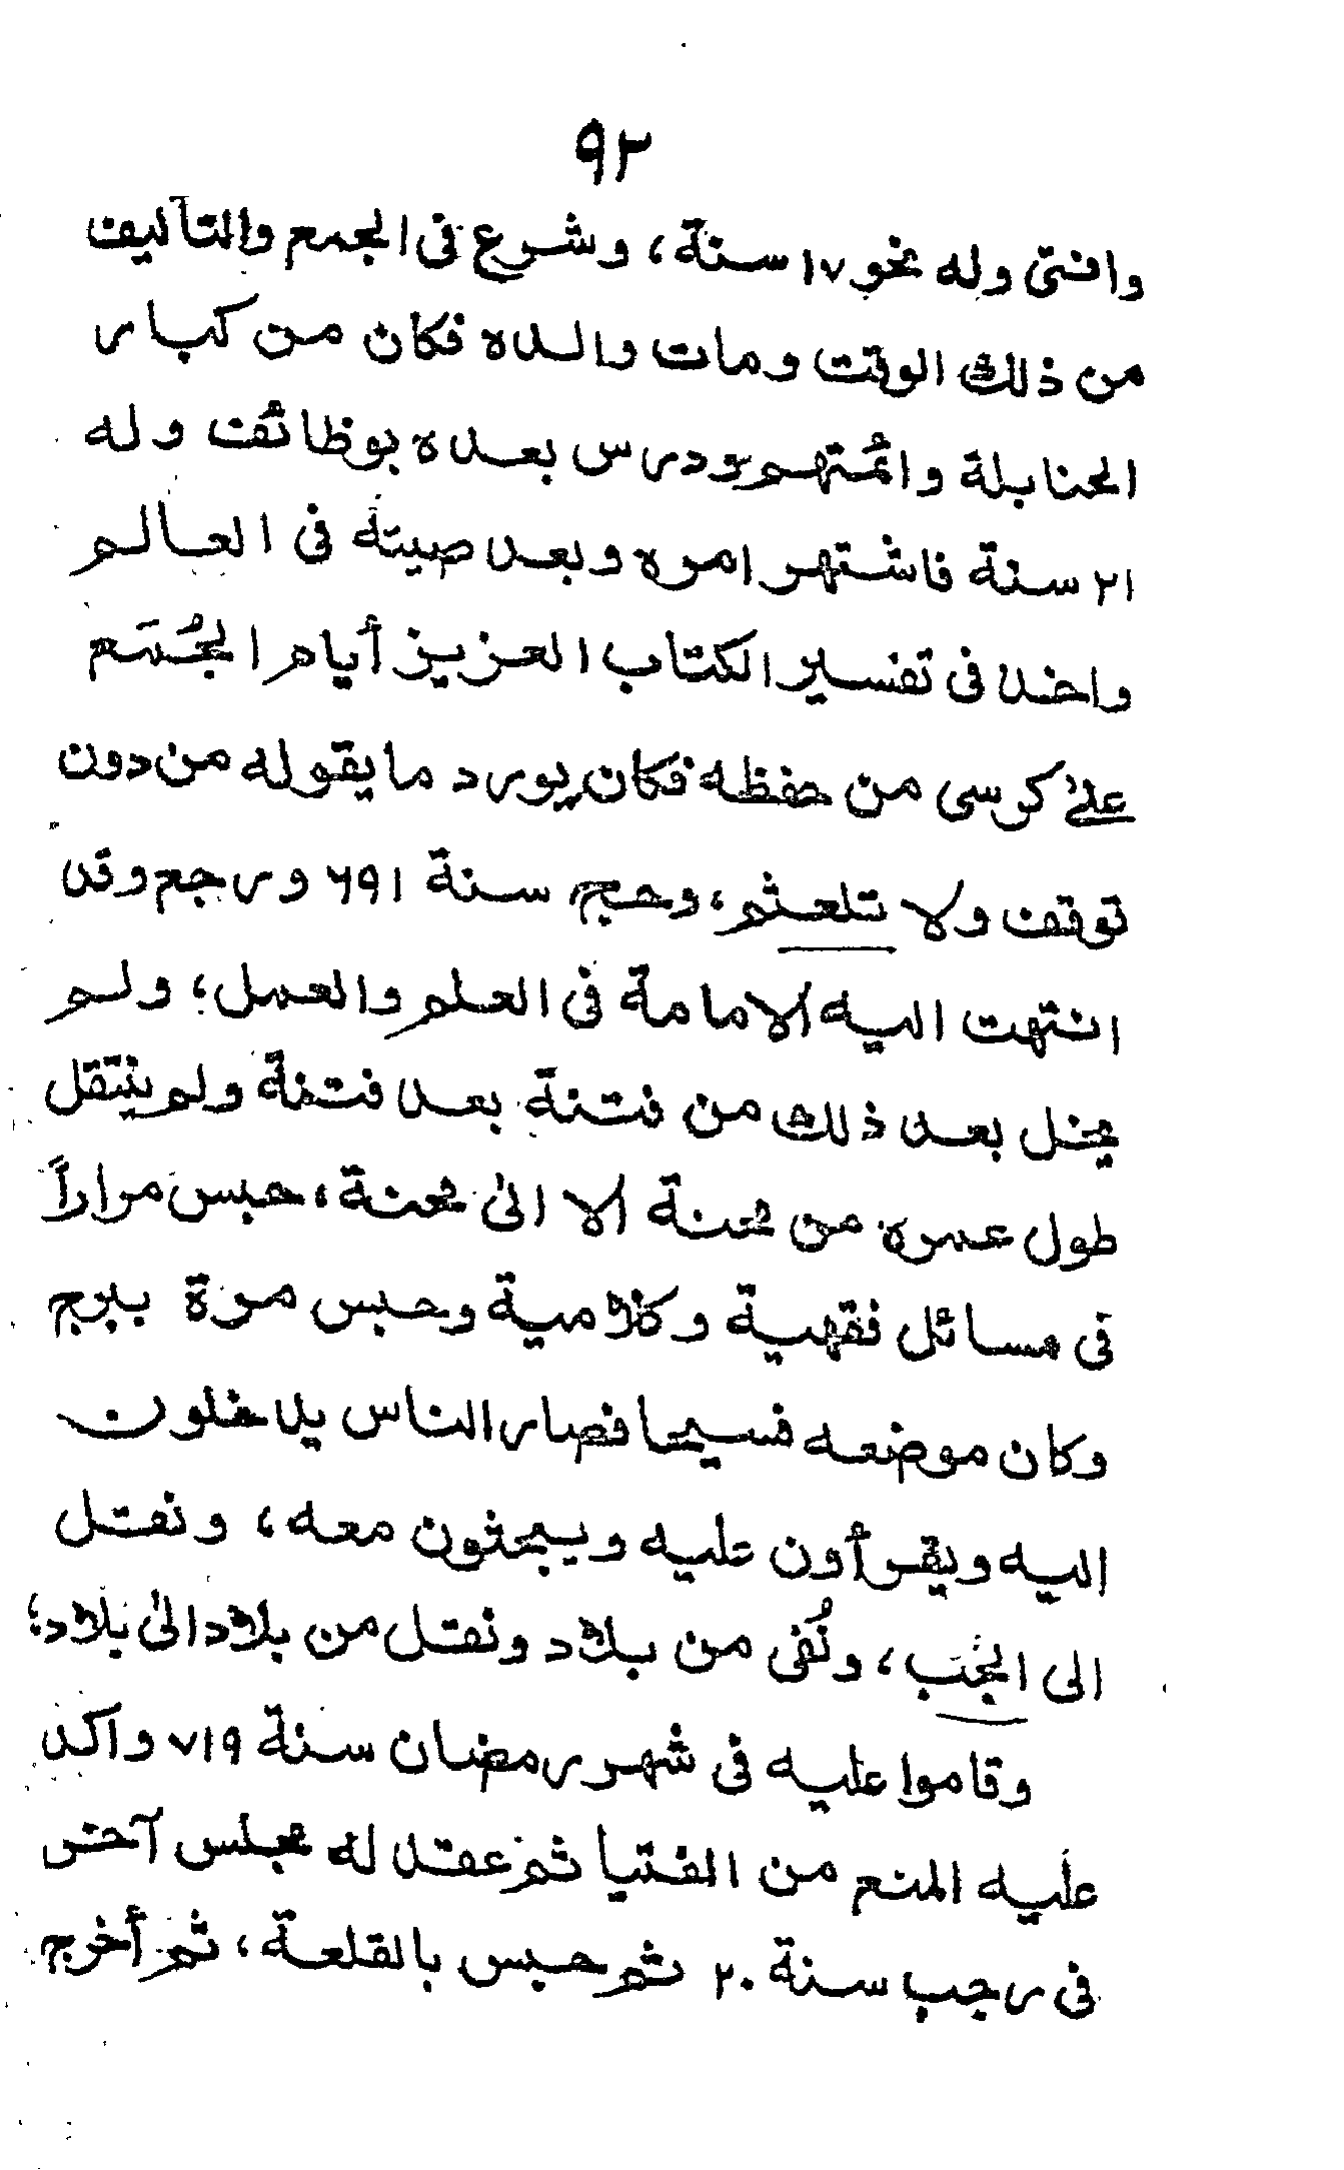 ٩٢
وافتى وله نحو ١٧ سنة، وشرع فى الجمع والتأليف
من ذلك الوقت ومات والده فكان من كبار
الحنابلة وائمتهم ودرس بعده بوظائف وله
٢١ سنة فاشتهر امره وبعد صيته فى العالم
واخذ فى تفسير الكتاب العزيز أيام الجُمَع
على كرسى من حفظه فكان يورد ما يقوله من دون
توقف ولا تلعثم، وحج سنة ٦٩١ ورجع وقد
انتهت اليه الامامة فى العلم والعمل؛ ولم
يخل بعد ذلك من فتنة بعد فتنة ولم ينتقل
طول عمره من محنة الا الى محنة، حبس مراراً
فى مسائل فقهية وكلامية وحبس مرة ببرج
وكان موضعه فسيحا فصار الناس يدخلون
اليه ويقرأون عليه ويبحثون معه، ونقل
الى الجُبّ، ونُفى من بلاد ونقل من بلاد الى بلاد؛
وقاموا عليه فى شهر رمضان سنة ٧١٩ واكد
عليه المنع من الفتيا ثم عقد له مجلس آخر
فى رجب سنة ٢٠ ثم حبس بالقلعة، ثم أخرج